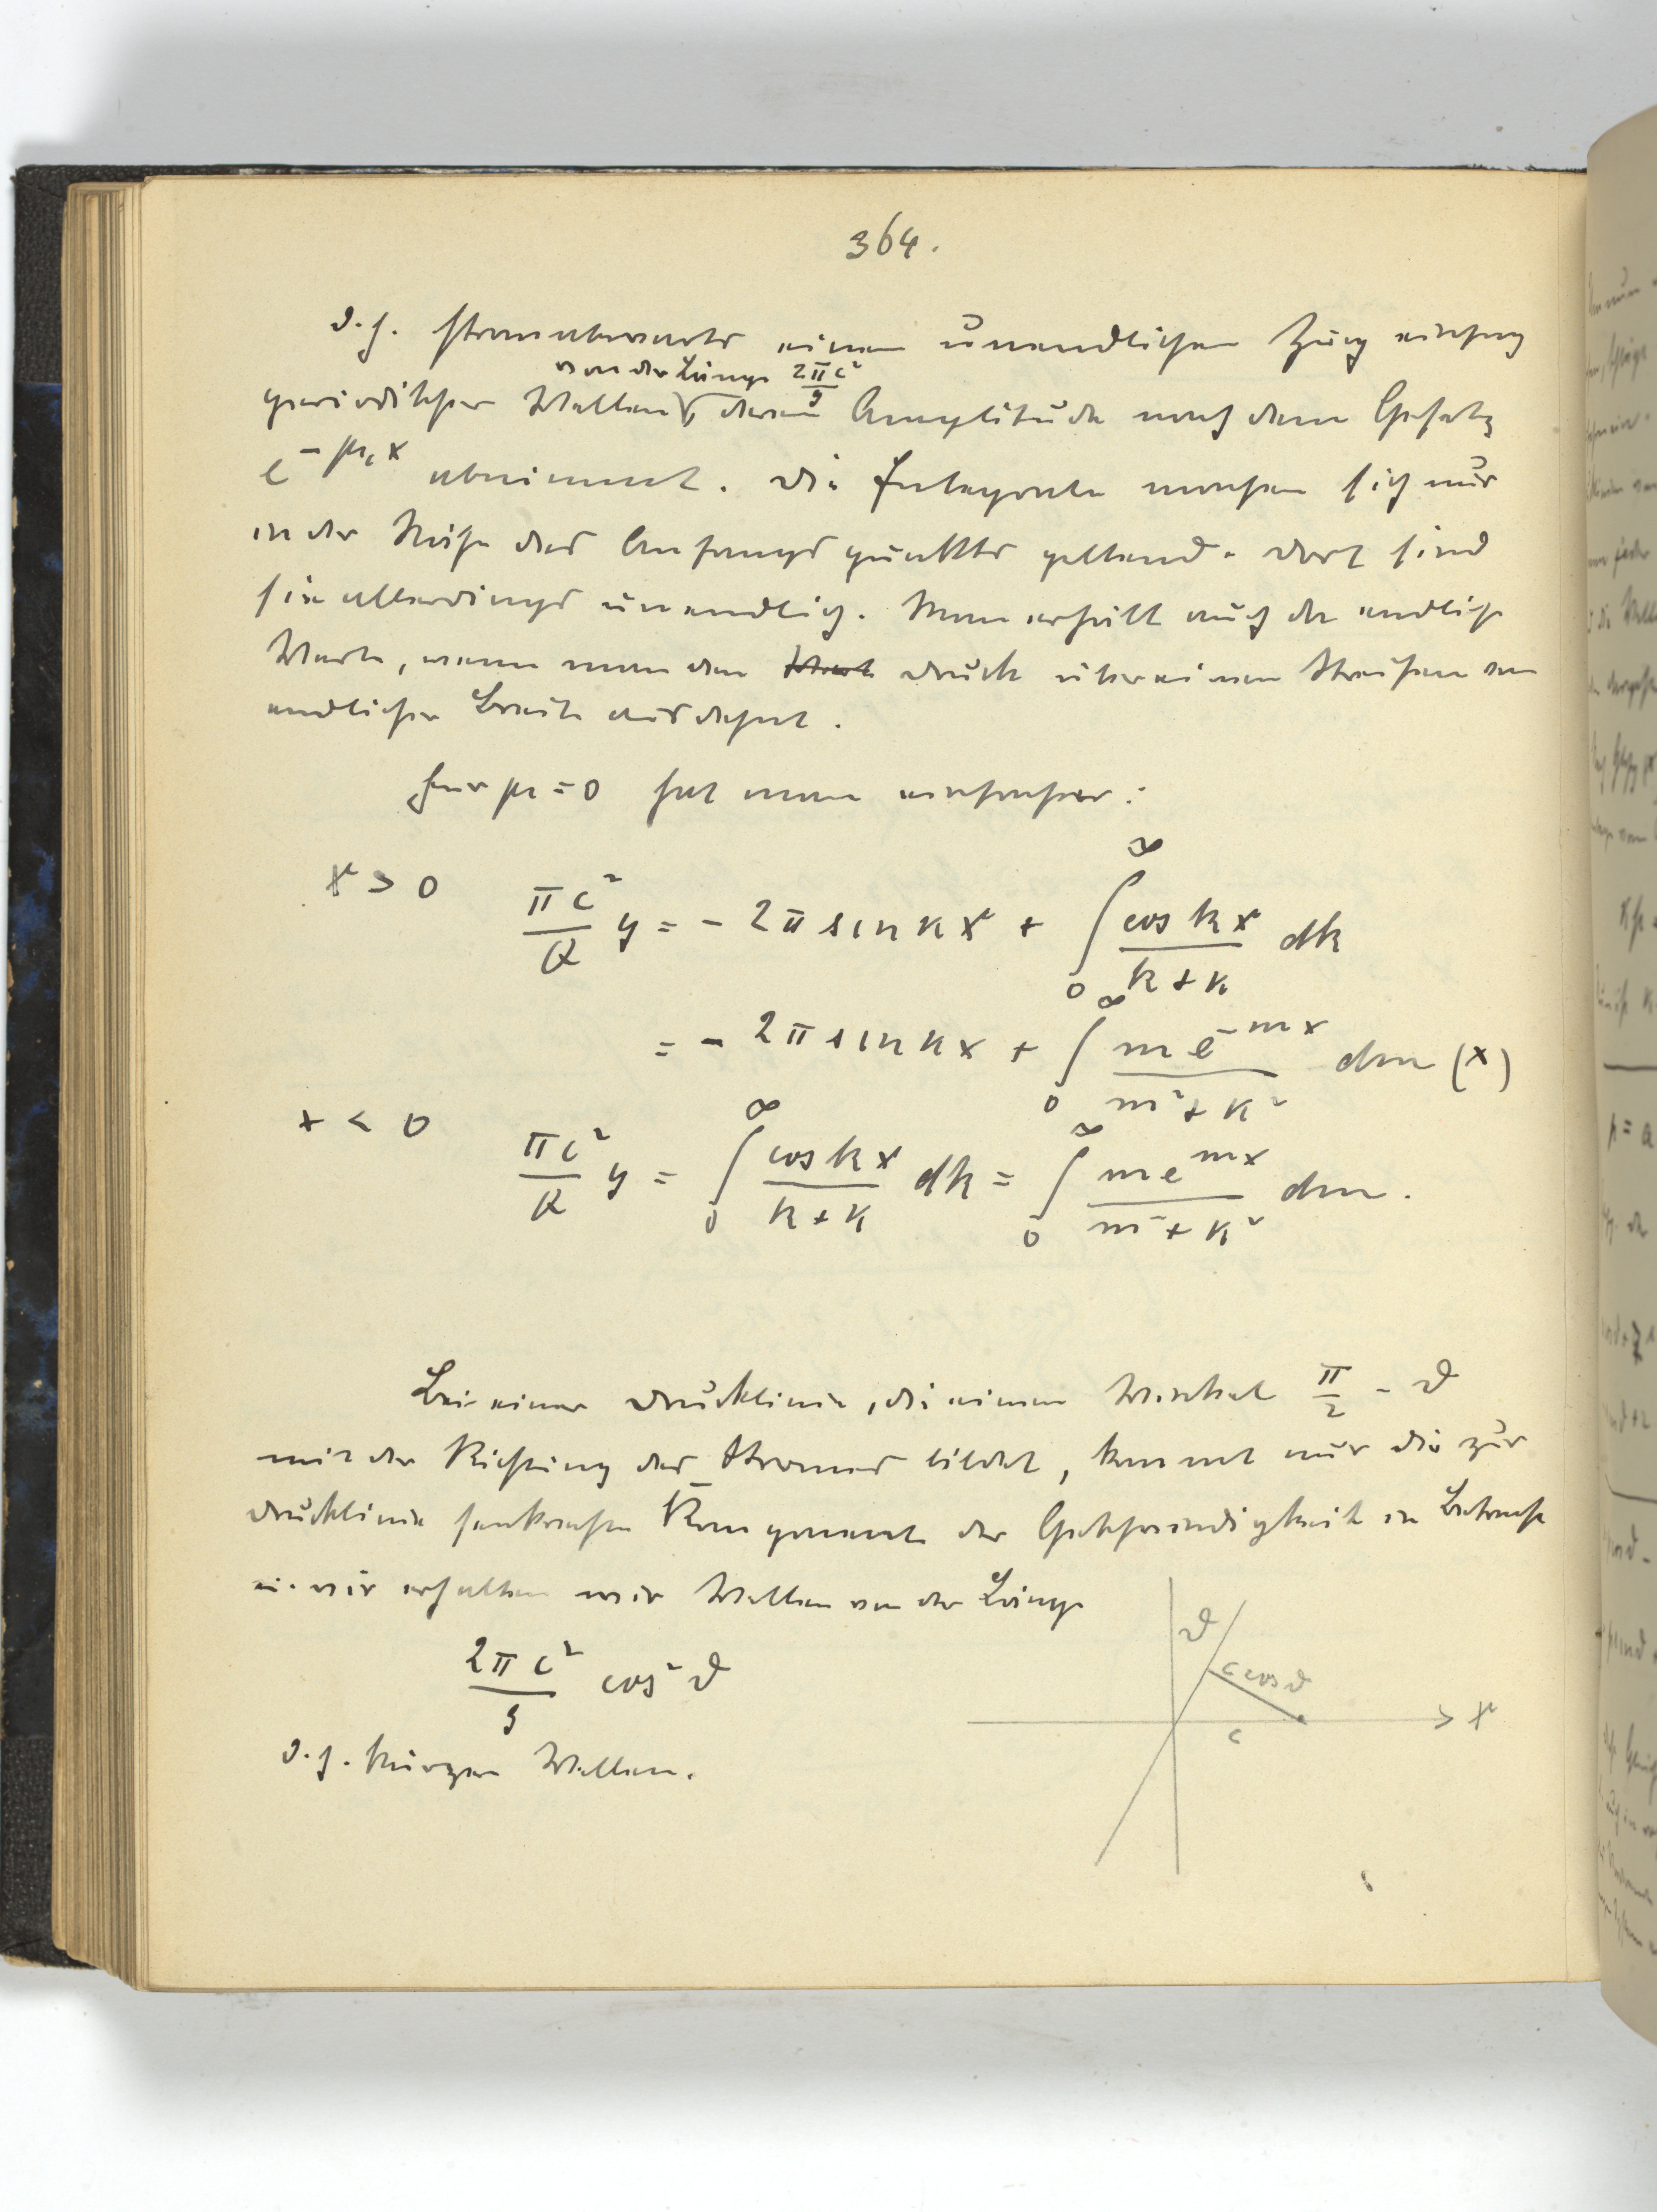 364.
d.h. stromabwärts einen unendlichen Zug einfach
von der Länge 2πc²/g
periodischer Wellen, deren Amplitude nach dem Gesetz
e^{-μ₁x} abnimmt. Die Integrale machen sich nur
in der Nähe des Anfangspunktes geltend. Dort sind
sie allerdings unendlich. Man erhält auch da endliche
Werte, wenn man den Druck über einen Streifen von
endlicher Breite ausdehnt.
Für μ = 0 hat man einfacher:
x > 0 πc²/Q y = - 2π sin κx + ∫₀^∞ cos kx / (k + κ) dk
= - 2π sin κx + ∫₀^∞ m e^{-mx} / (m² + κ²) dm (x)
x < 0 πc²/Q y = ∫₀^∞ cos kx / (k + κ) dk = ∫₀^∞ m e^{mx} / (m² + κ²) dm.
Bei einer Drucklinie, die einen Winkel π/2 - ϑ
mit der Richtung des Stromes bildet, kommt nur die zur
Drucklinie senkrechte Komponente der Geschwindigkeit in Betracht
u. wir erhalten wir Wellen von der Länge
2πc²/g cos² ϑ
d.h. kürzere Wellen.
ϑ
c cos ϑ
c
x